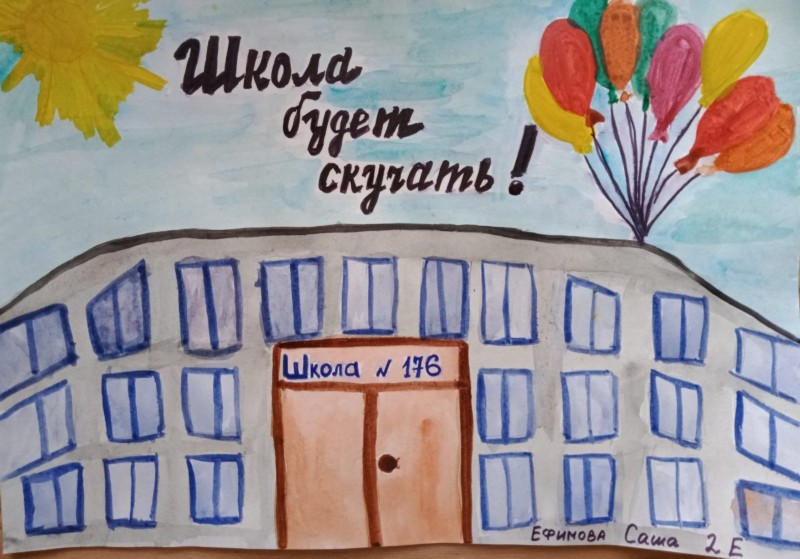 Школа
будет
скучать!
Школа № 176
Ефимова Саша 2 Е